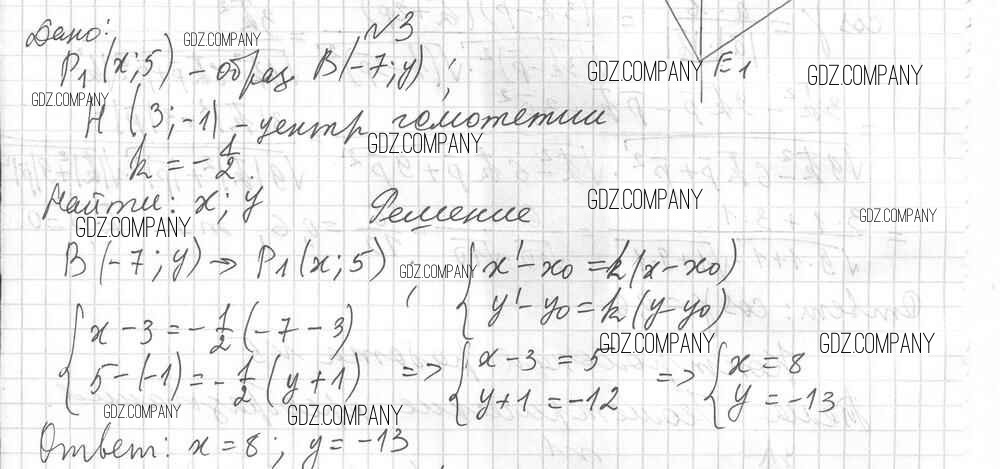 №3
Дано:
P1 (x; 5) – образ B(-7; y);
H (3; -1) – центр гомотетии
k = -1/2.
Найти: x; y
Решение
B(-7; y) → P1(x; 5); { x' - x0 = k(x - x0)
y' - y0 = k(y - y0)
{ x - 3 = -1/2 (-7 - 3)
5 - (-1) = -1/2 (y + 1) => { x - 3 = 5
y + 1 = -12 => { x = 8
y = -13
Ответ: x = 8; y = -13
E1
GDZ.COMPANY
GDZ.COMPANY
GDZ.COMPANY
GDZ.COMPANY
GDZ.COMPANY
GDZ.COMPANY
GDZ.COMPANY
GDZ.COMPANY
GDZ.COMPANY
GDZ.COMPANY
GDZ.COMPANY
GDZ.COMPANY
GDZ.COMPANY